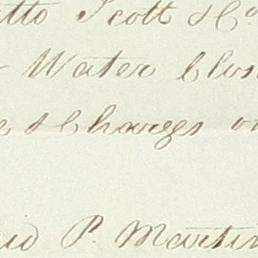 tto Scott & Co
Water Clos
e & Charges o
P. Martin